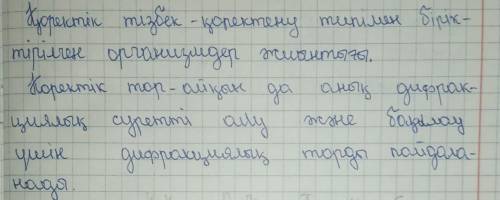 Қоректік тізбек - қоректену типімен бірік-
тірілген организмдер жиынтығы.
Қоректік тор - айқын да анық дифрак-
циялық суретті алу және бақылау
үшін дифракциялық торды пайдала-
нады.